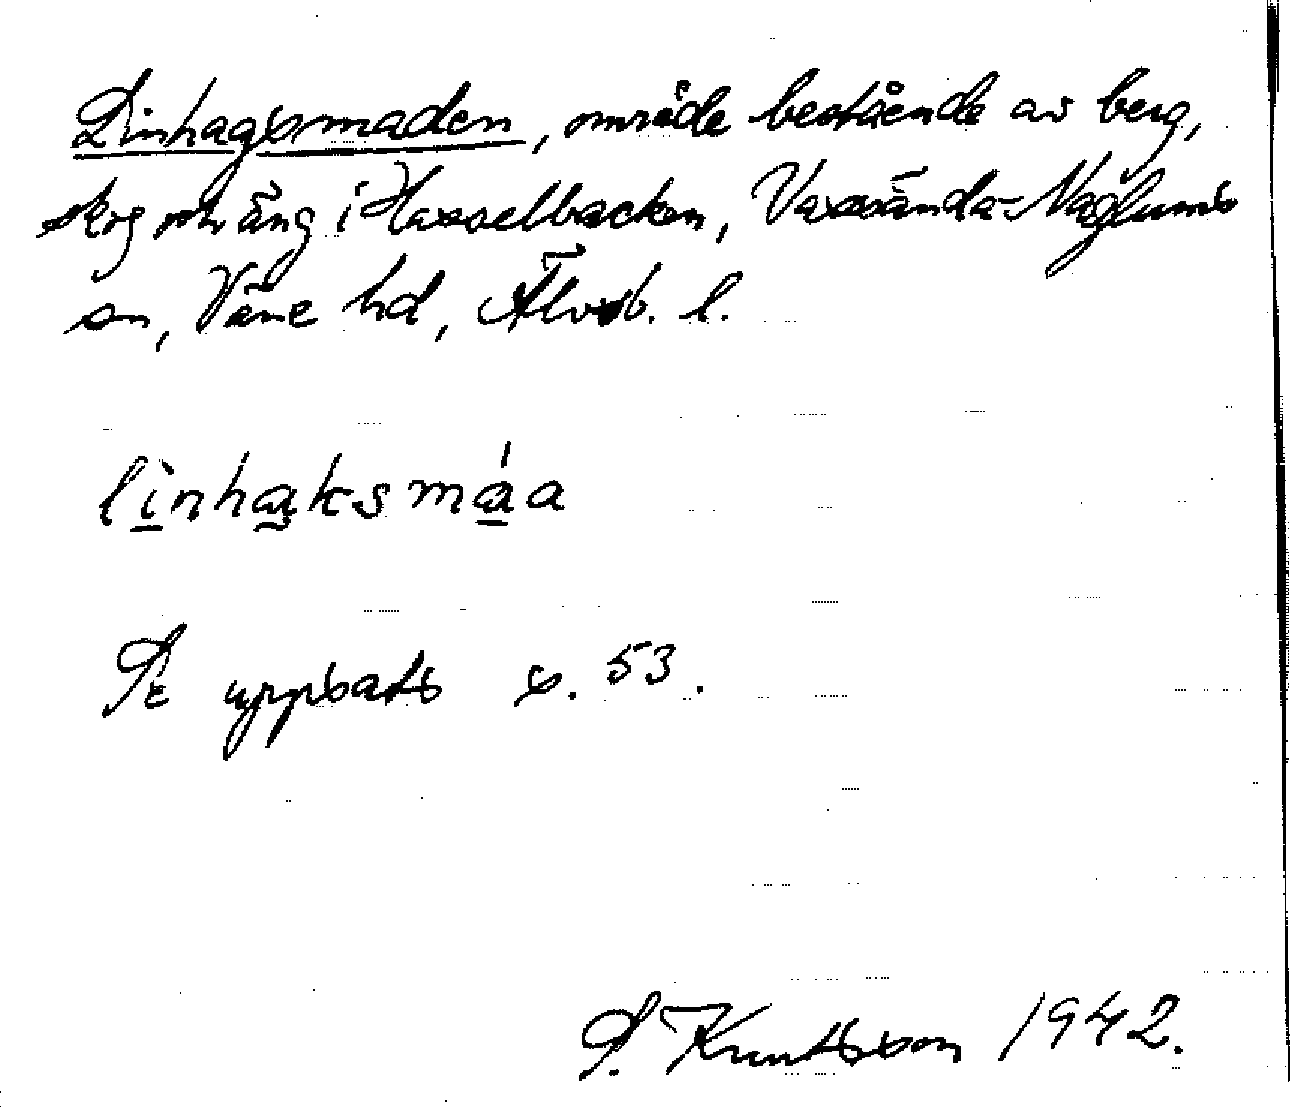 Linhagsmaden, område bestående av berg,
skog och äng i Hasselbacken, Vassända-Naglums
sn, Väne hd, Älvsb. l.
lìnhaksmáa
Se uppsats s. 53.
S. Knutsson 1942.